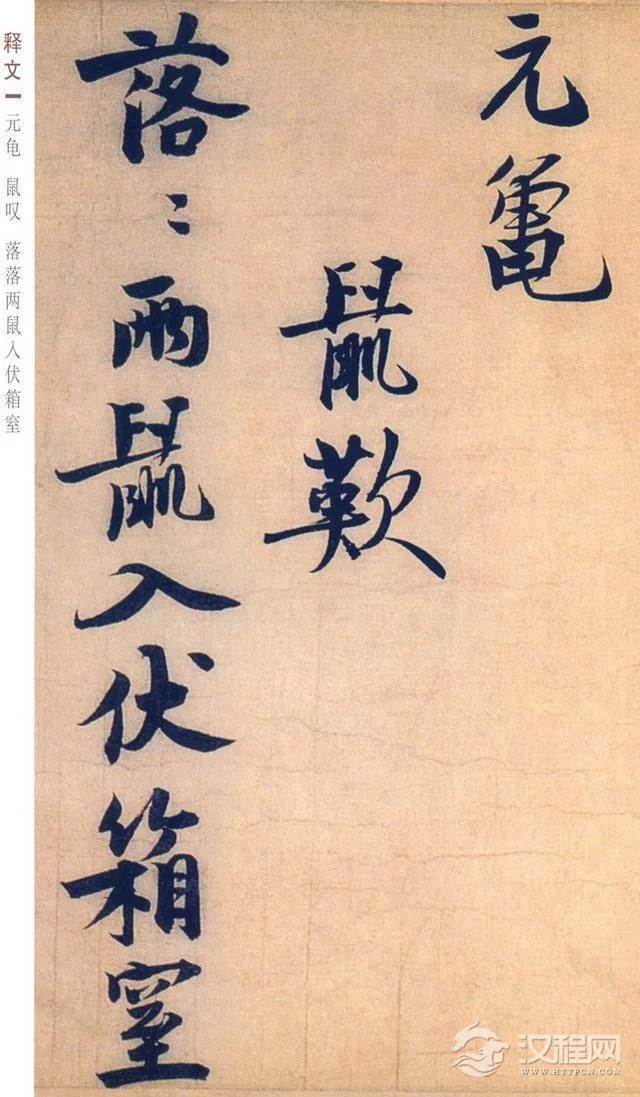 元龜
鼠歎
落〻兩鼠入伏箱窒
释文 元龟 鼠叹 落落两鼠入伏箱窒
汉程网
WWW.HTTPCN.COM